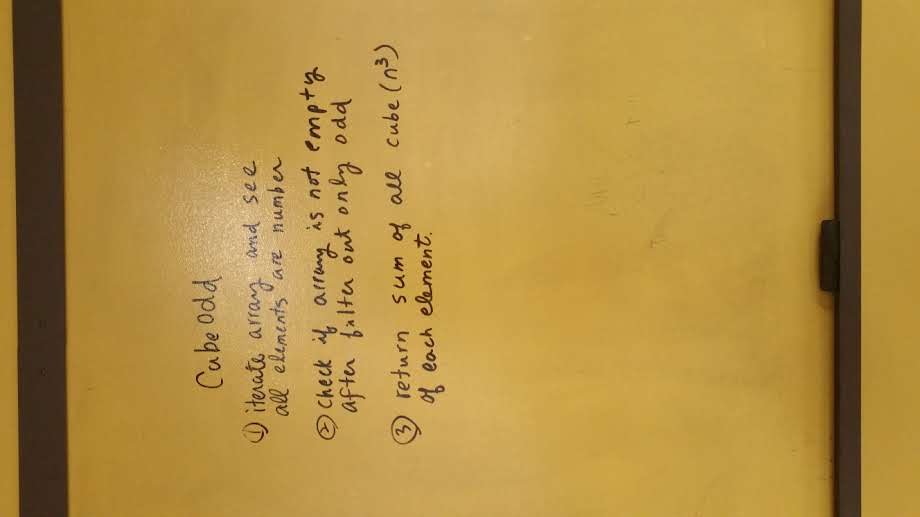 Cube odd
① iterate array and see
all elements are number
② check if array is not empty
after filter out only odd
③ return sum of all cube (n³)
of each element.